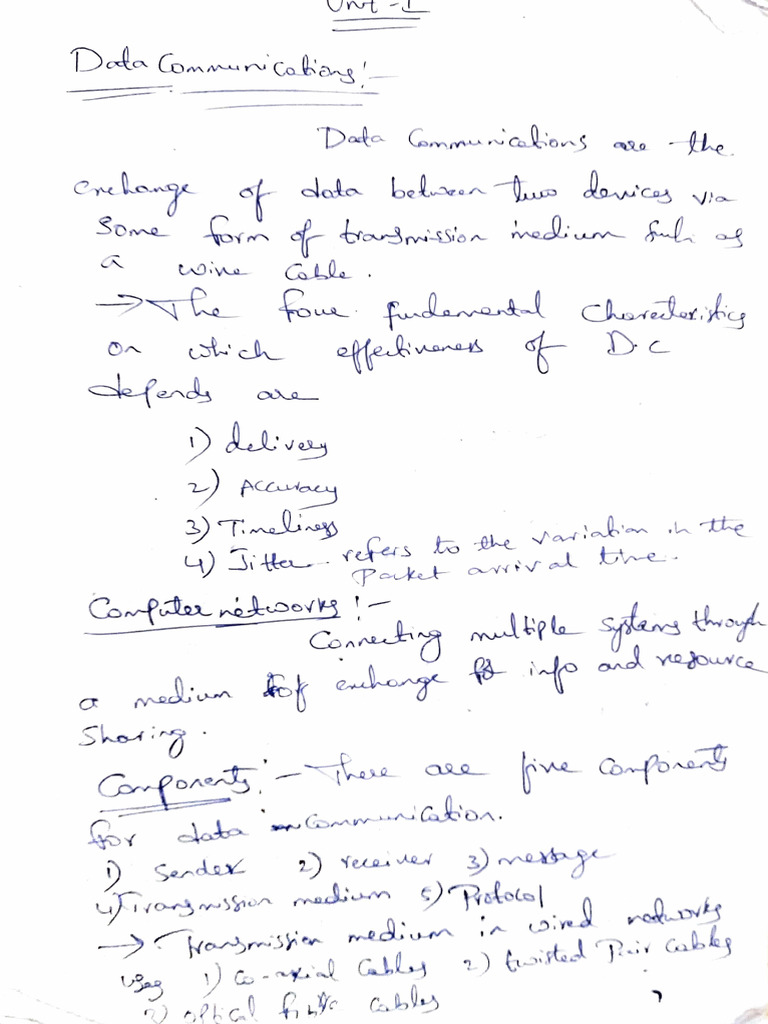 Unit - I
Data Communications :-
Data Communications are the
exchange of data between two devices via
some form of transmission medium such as
a wire cable.
→ The four fundemental Charecteristics
on which effectiveness of D.C
depends are
1) delivery
2) Accuracy
3) Timeliness
4) Jitter refers to the variation in the
Packet arrival time.
Computer networks :-
Connecting multiple systems through
a medium of exchange of info and resource
sharing.
Components :- There are five components
for data communication.
1) Sender 2) receiver 3) message
4) Transmission medium 5) Protocol
→ Transmission medium in wired networks
1) Co-axial Cables 2) twisted Pair Cables
3) optical cables